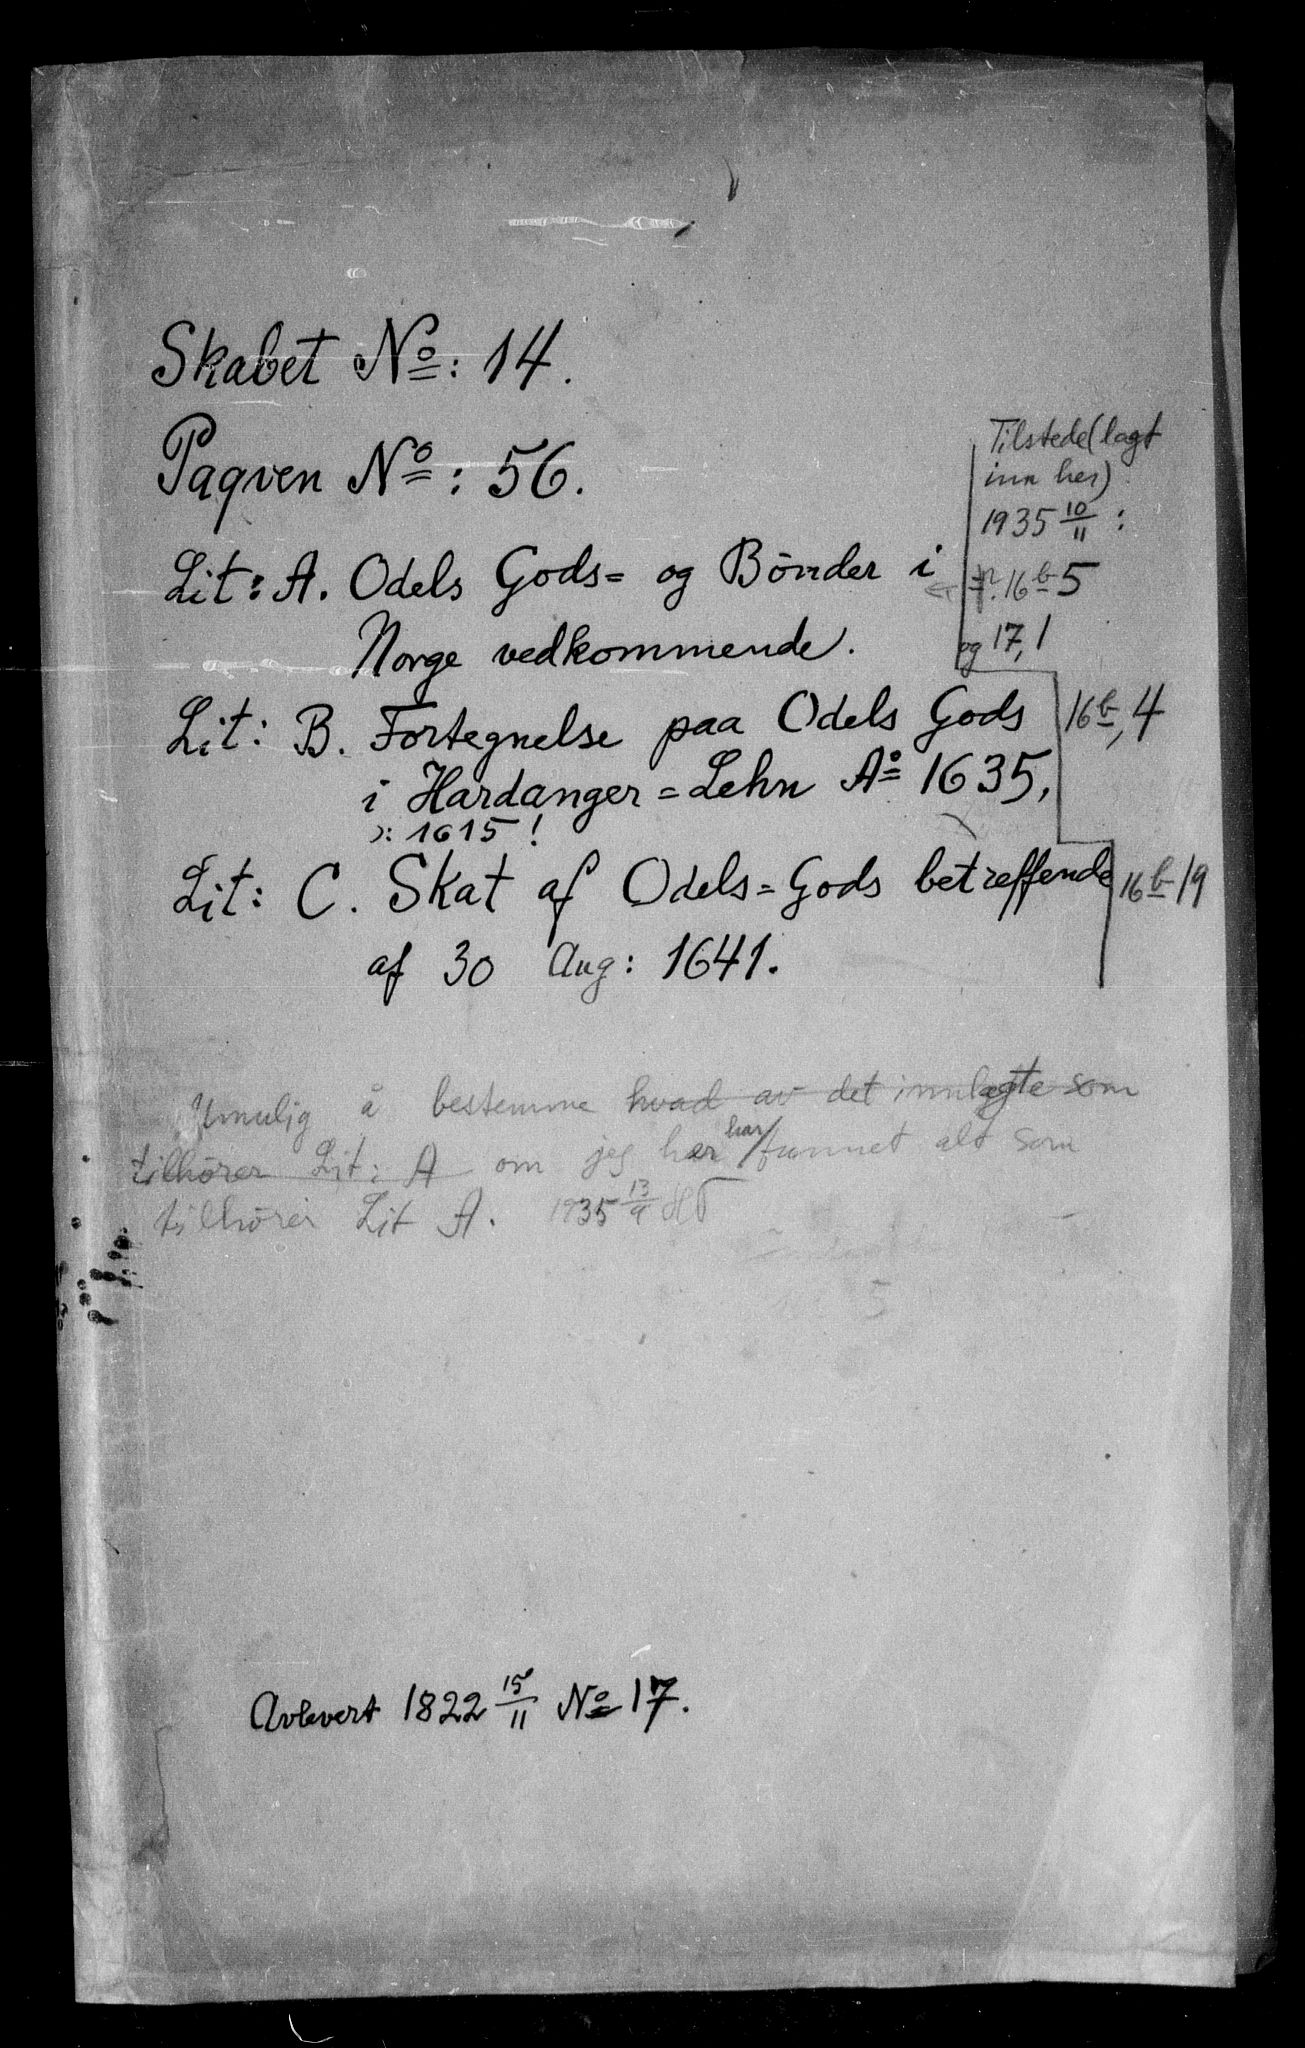 Skabet No: 14.
Paqven No: 56.
Tilstede (lagt
inn her)
1935 10/11 :
16b 5
og 17,1
Lit: A. Odels Gods= og Bönder i
Norge vedkommende.
Lit: B. Fortegnelse paa Odels Gods
16b, 4
i Hardanger=Lehn Ao 1635,
ɔ: 1615!
Lit: C. Skat af Odels=Gods betreffende
16b 19
af 30 Aug: 1641.
Umulig å bestemme hvad av det innlagte som
tilhører Lit: A om jeg her har funnet alt som
tilhører Lit A. 1935 13/9 HT
Avlevert 1822 15/11 No 17.